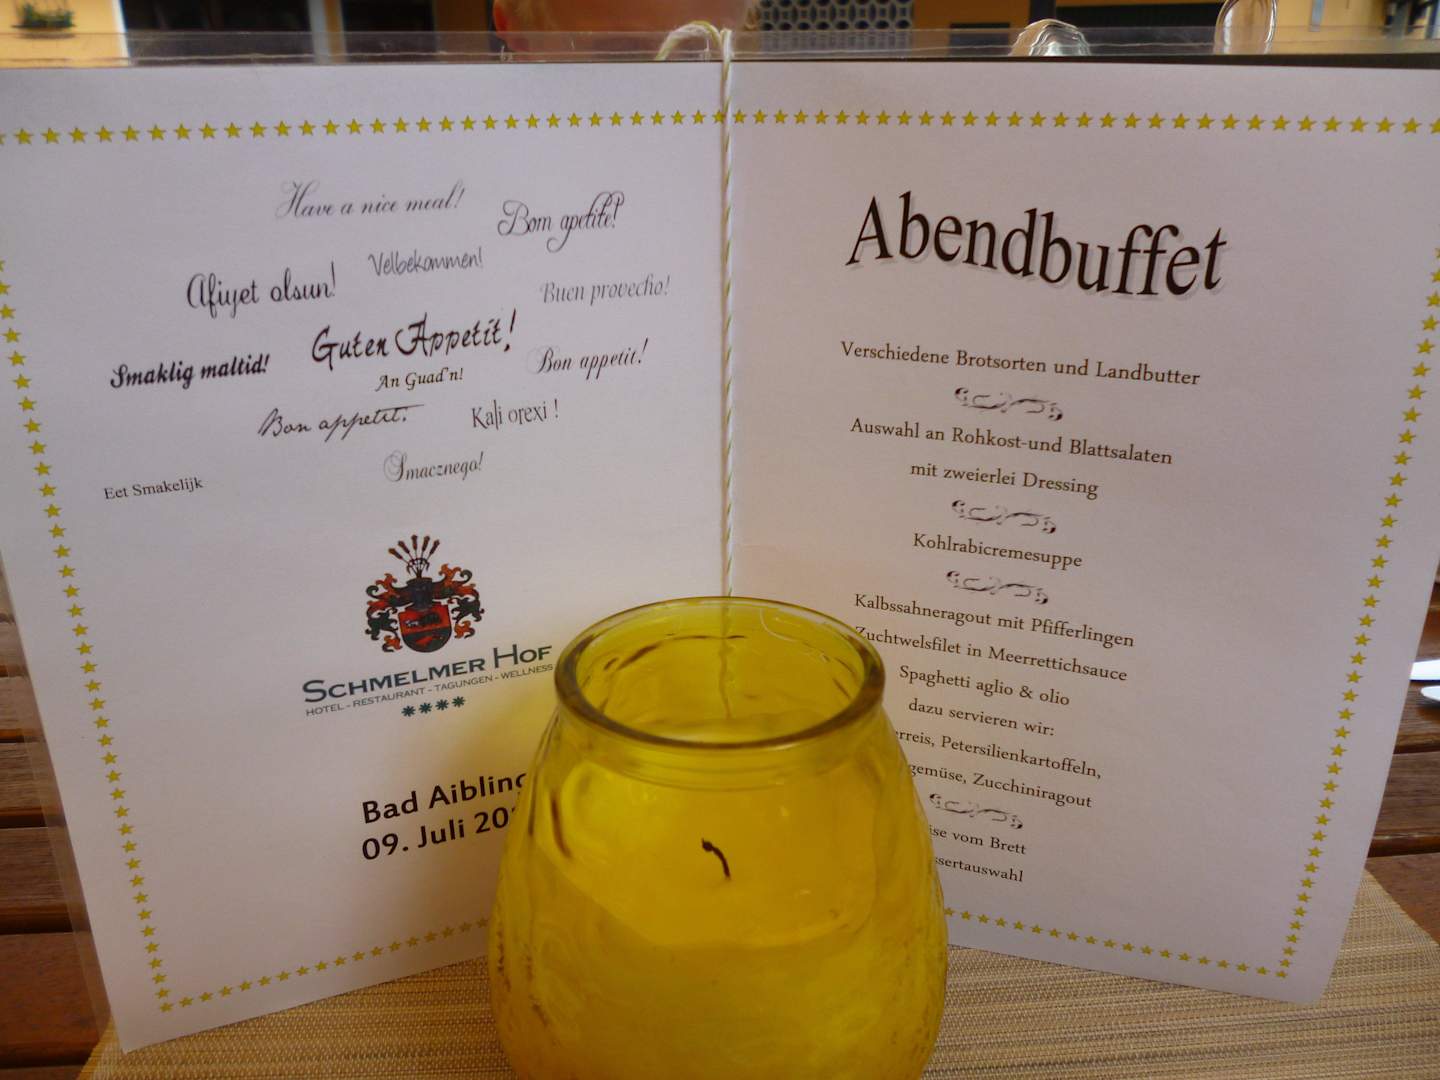 Have a nice meal!
Bom apetite!
Velbekommen!
Afiyet olsun!
Buen provecho!
Guten Appetit!
Smaklig maltid!
Bon appetit!
An Guad'n!
Bon appetit!
Kali orexi !
Smacznego!
Eet Smakelijk
SCHMELMER HOF
HOTEL - RESTAURANT - TAGUNGEN - WELLNESS
Bad Aibling
09. Juli
Abendbuffet
Verschiedene Brotsorten und Landbutter
Auswahl an Rohkost-und Blattsalaten
mit zweierlei Dressing
Kohlrabicremesuppe
Kalbssahneragout mit Pfifferlingen
Zuchtwelsfilet in Meerrettichsauce
Spaghetti aglio & olio
dazu servieren wir:
Petersilienkartoffeln,
Zucchiniragout
vom Brett